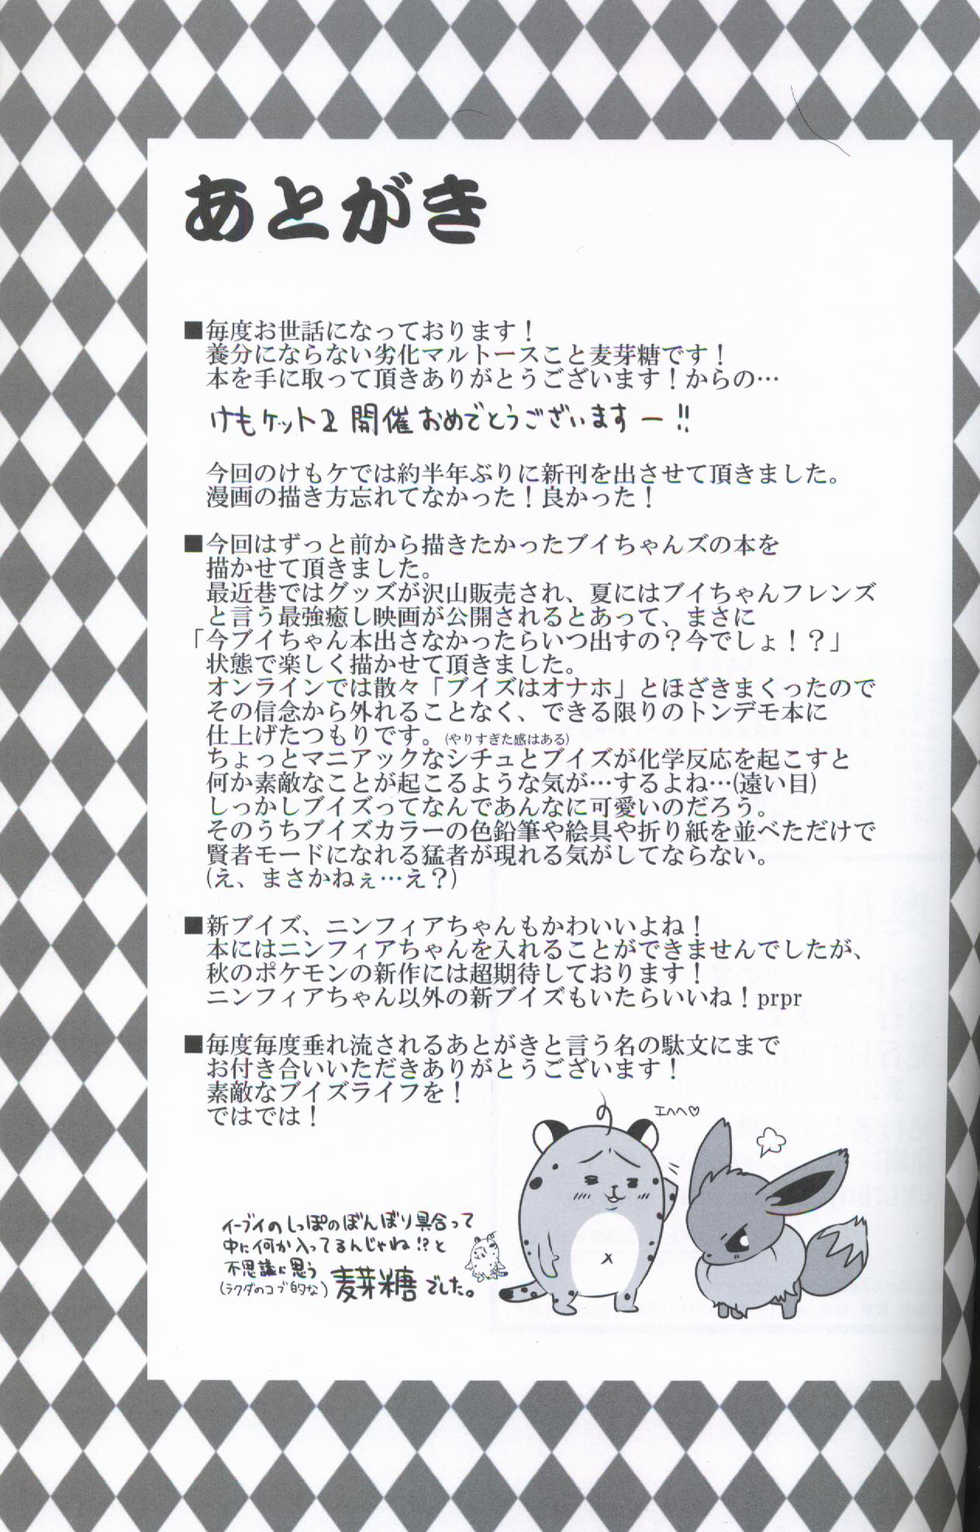 あとがき
■毎度お世話になっております！
養分にならない劣化マルトースこと麦芽糖です！
本を手に取って頂きありがとうございます！からの…
けもケット2 開催おめでとうございますー!!
今回のけもケでは約半年ぶりに新刊を出させて頂きました。
漫画の描き方忘れてなかった！良かった！
■今回はずっと前から描きたかったブイちゃんズの本を
描かせて頂きました。
最近巷ではグッズが沢山販売され、夏にはブイちゃんフレンズ
と言う最強癒し映画が公開されるとあって、まさに
「今ブイちゃん本出さなかったらいつ出すの？今でしょ！？」
状態で楽しく描かせて頂きました。
オンラインでは散々「ブイズはオナホ」とほざきまくったので
その信念から外れることなく、できる限りのトンデモ本に
仕上げたつもりです。(やりすぎた感はある)
ちょっとマニアックなシチュとブイズが化学反応を起こすと
何か素敵なことが起こるような気が…するよね…(遠い目)
しっかしブイズってなんであんなに可愛いのだろう。
そのうちブイズカラーの色鉛筆や絵具や折り紙を並べただけで
賢者モードになれる猛者が現れる気がしてならない。
(え、まさかねぇ…え？)
■新ブイズ、ニンフィアちゃんもかわいいよね！
本にはニンフィアちゃんを入れることができませんでしたが、
秋のポケモンの新作には超期待しております！
ニンフィアちゃん以外の新ブイズもいたらいいね！prpr
■毎度毎度垂れ流されるあとがきと言う名の駄文にまで
お付き合いいただきありがとうございます！
素敵なブイズライフを！
ではでは！
エヘヘ♡
イーブイのしっぽのぼんぼり具合って
中に何か入ってるんじゃね!?と
不思議に思う
(ラクダのコブ的な) 麦芽糖でした。